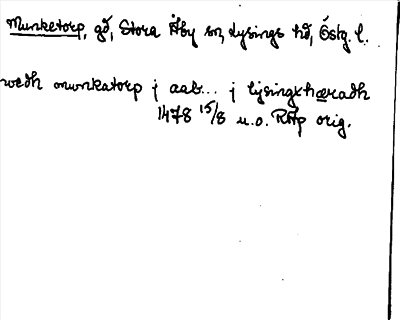 Munketorp, gd, Stora Åby sn, Lysings hd, Östg. l.
wedh munkatorp j aab... j lysingxhæradh
1478 15/8 u.o. RAp orig.